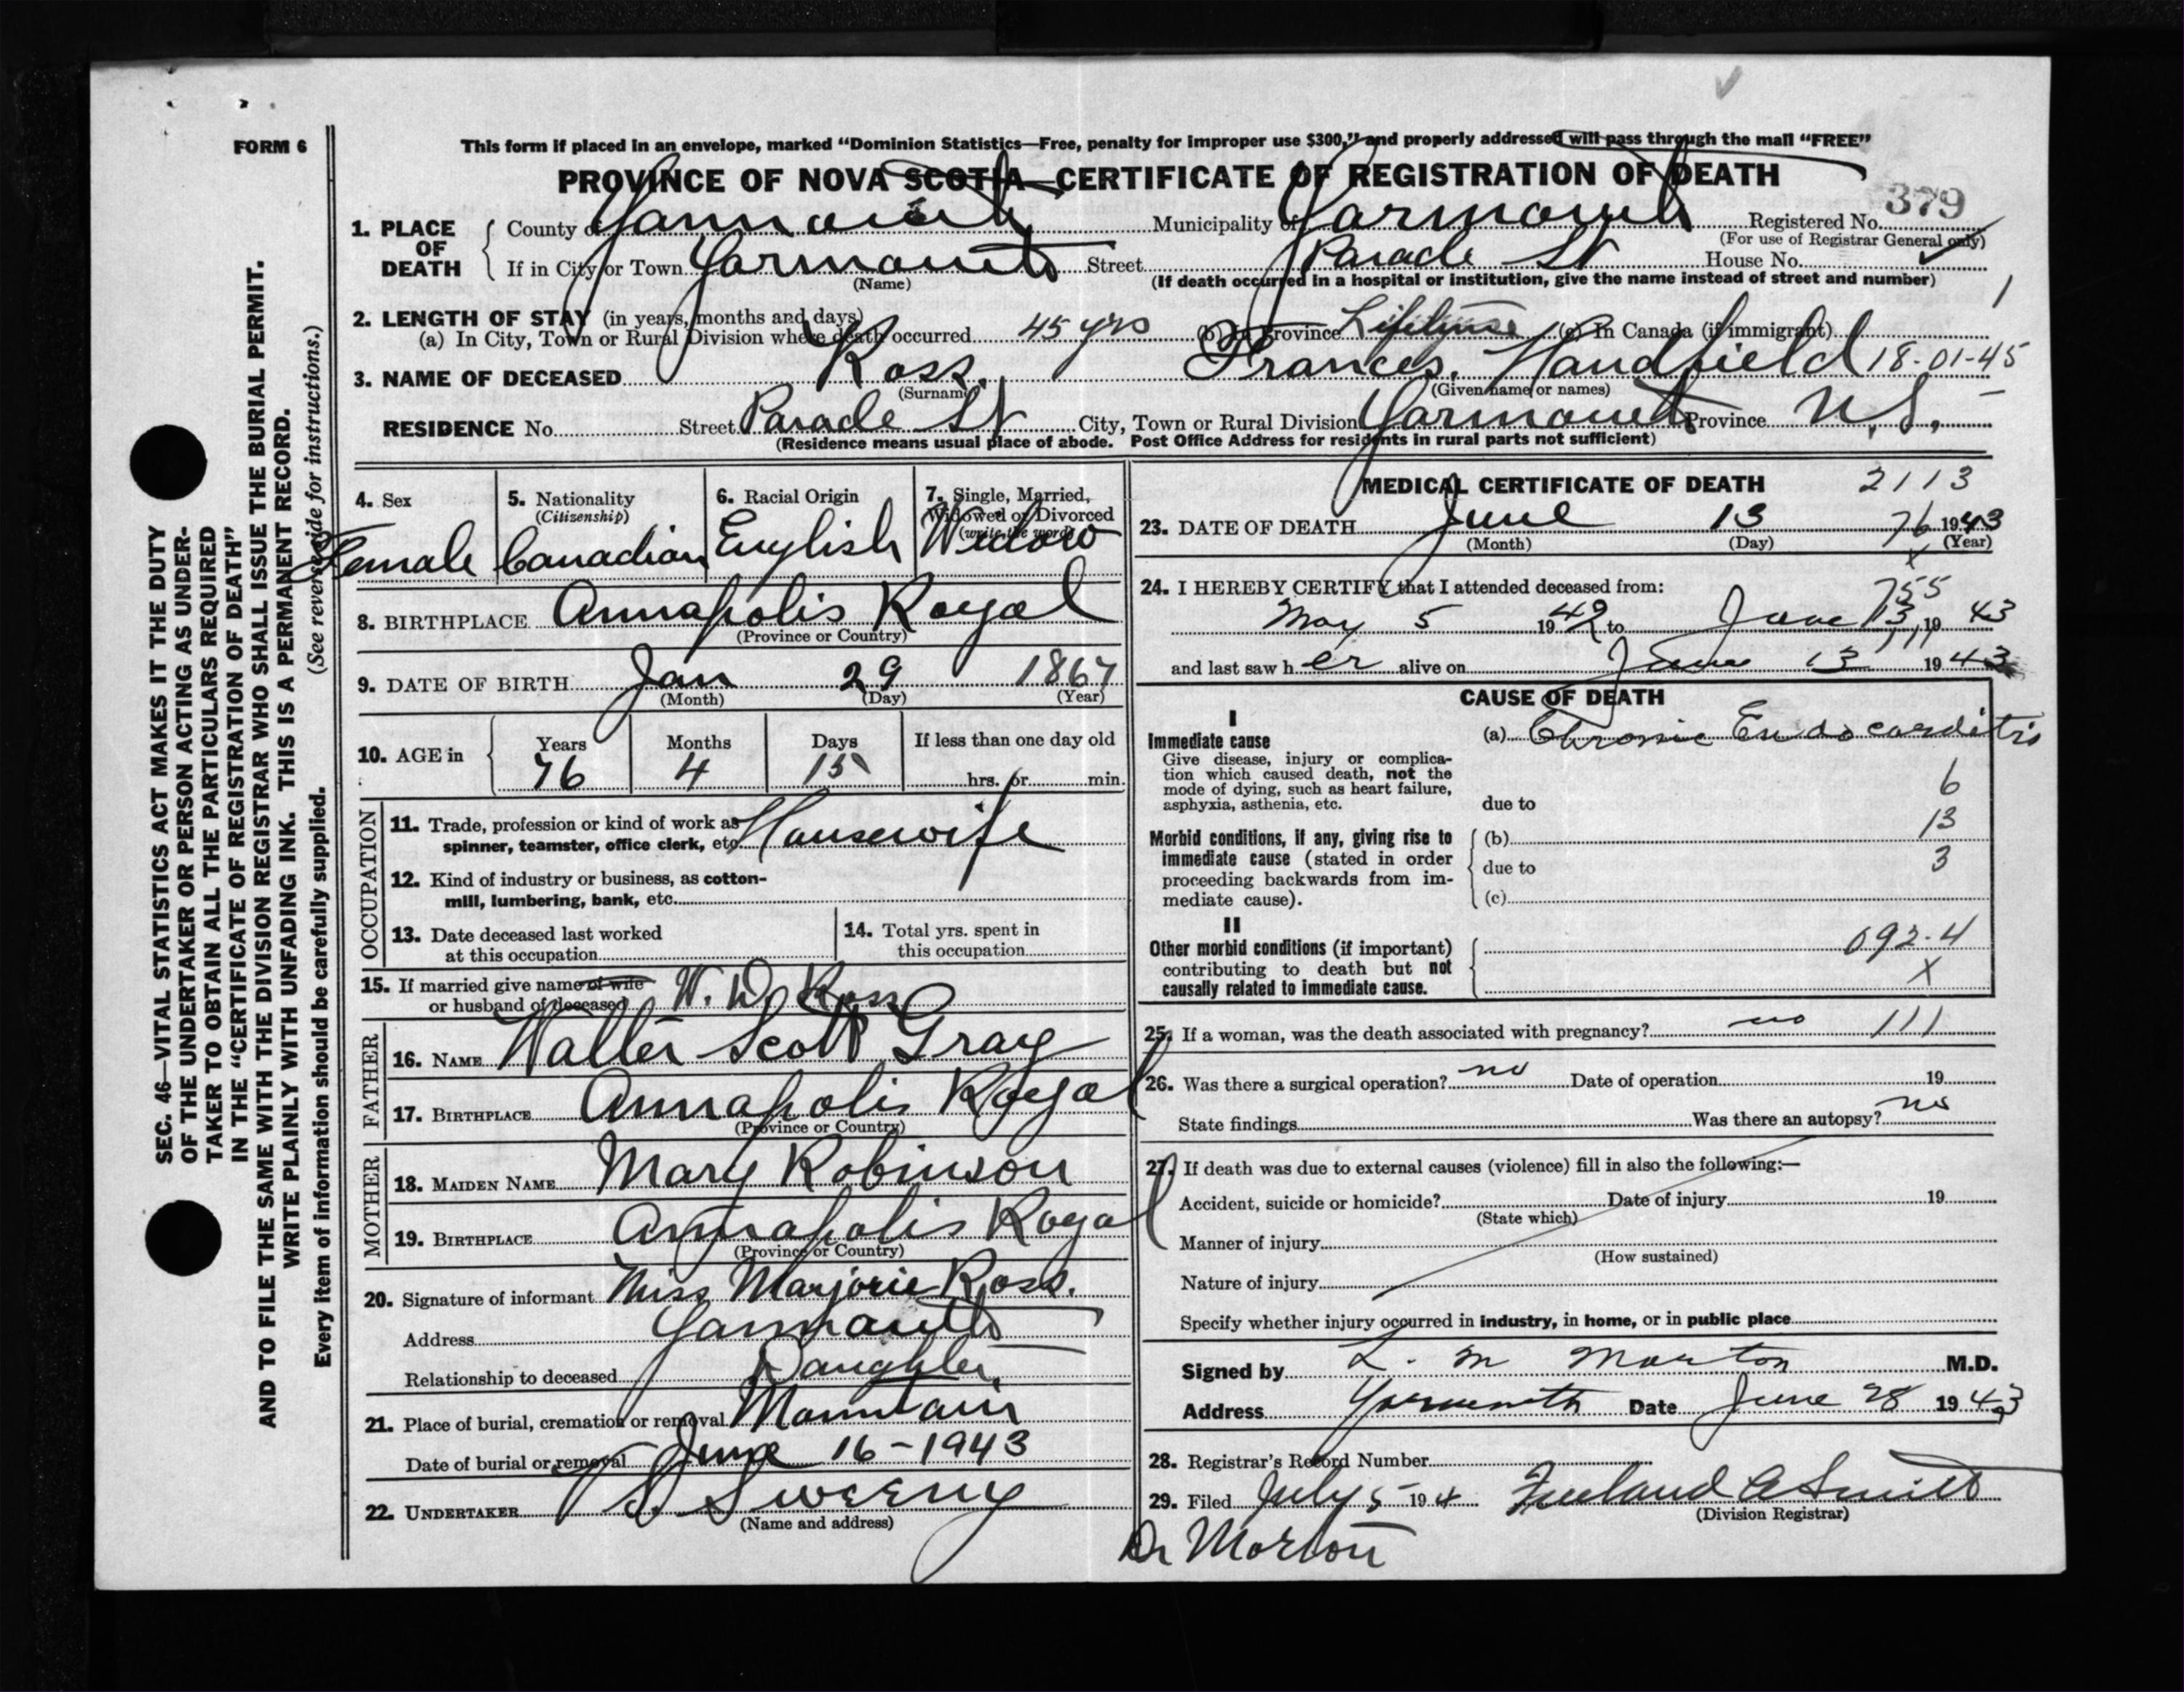 FORM 6
This form if placed in an envelope, marked "Dominion Statistics—Free, penalty for improper use $300," and properly addressed will pass through the mail "FREE"
PROVINCE OF NOVA SCOTIA—CERTIFICATE OF REGISTRATION OF DEATH
379
1. PLACE OF DEATH { County of Yarmouth Municipality of Yarmouth Registered No.
(For use of Registrar General only)
If in City or Town Yarmouth Street Parade St House No.
(Name) (If death occurred in a hospital or institution, give the name instead of street and number)
1
2. LENGTH OF STAY (in years, months and days)
(a) In City, Town or Rural Division where death occurred 45 yrs (b) In Province Lifetime (c) In Canada (if immigrant)
3. NAME OF DECEASED Ross. Frances. Handfield 18-01-45
(Surname) (Given name or names)
RESIDENCE No. Street Parade St City, Town or Rural Division Yarmouth Province N.S.
(Residence means usual place of abode. Post Office Address for residents in rural parts not sufficient)
4. Sex
Female
5. Nationality
(Citizenship)
Canadian
6. Racial Origin
English
7. Single, Married,
Widowed or Divorced
(write the word)
Widow
8. BIRTHPLACE Annapolis Royal
(Province or Country)
9. DATE OF BIRTH Jan 29 1867
(Month) (Day) (Year)
10. AGE in { Years Months Days If less than one day old
76 4 15 hrs. or min.
OCCUPATION
11. Trade, profession or kind of work as
spinner, teamster, office clerk, etc. Housewife
12. Kind of industry or business, as cotton-
mill, lumbering, bank, etc.
13. Date deceased last worked
at this occupation
14. Total yrs. spent in
this occupation
15. If married give name of wife
or husband of deceased W. D. Ross
FATHER
16. NAME Walter Scott Gray
17. BIRTHPLACE Annapolis Royal
(Province or Country)
MOTHER
18. MAIDEN NAME Mary Robinson
19. BIRTHPLACE Annapolis Royal
(Province or Country)
20. Signature of informant Miss Marjorie Ross.
Address Yarmouth
Relationship to deceased Daughter
21. Place of burial, cremation or removal Mountain
Date of burial or removal June 16-1943
22. UNDERTAKER Sweeny
(Name and address)
MEDICAL CERTIFICATE OF DEATH 2113
23. DATE OF DEATH June 13 76 1943
(Month) (Day) (Year)
x
24. I HEREBY CERTIFY that I attended deceased from:
755
May 5 1942 to June 13, 19 43
and last saw her alive on June 13 1943
CAUSE OF DEATH
I
Immediate cause
Give disease, injury or complica-
tion which caused death, not the
mode of dying, such as heart failure,
asphyxia, asthenia, etc.
(a) Chronic Endocarditis
6
due to
13
Morbid conditions, if any, giving rise to
immediate cause (stated in order
proceeding backwards from im-
mediate cause).
(b)
due to
3
(c)
II
Other morbid conditions (if important)
contributing to death but not
causally related to immediate cause.
092.4
X
25. If a woman, was the death associated with pregnancy? no 111
26. Was there a surgical operation? no Date of operation 19
State findings Was there an autopsy? no
27. If death was due to external causes (violence) fill in also the following:—
Accident, suicide or homicide? Date of injury 19
(State which)
Manner of injury
(How sustained)
Nature of injury
Specify whether injury occurred in industry, in home, or in public place
Signed by L. M Morton M.D.
Address Yarmouth Date June 28 1943
28. Registrar's Record Number
29. Filed July 5 194 Freeland A Smith
(Division Registrar)
Dr Morton
SEC. 46—VITAL STATISTICS ACT MAKES IT THE DUTY
OF THE UNDERTAKER OR PERSON ACTING AS UNDER-
TAKER TO OBTAIN ALL THE PARTICULARS REQUIRED
IN THE "CERTIFICATE OF REGISTRATION OF DEATH"
AND TO FILE THE SAME WITH THE DIVISION REGISTRAR WHO SHALL ISSUE THE BURIAL PERMIT.
WRITE PLAINLY WITH UNFADING INK. THIS IS A PERMANENT RECORD.
Every item of information should be carefully supplied. (See reverse side for instructions.)